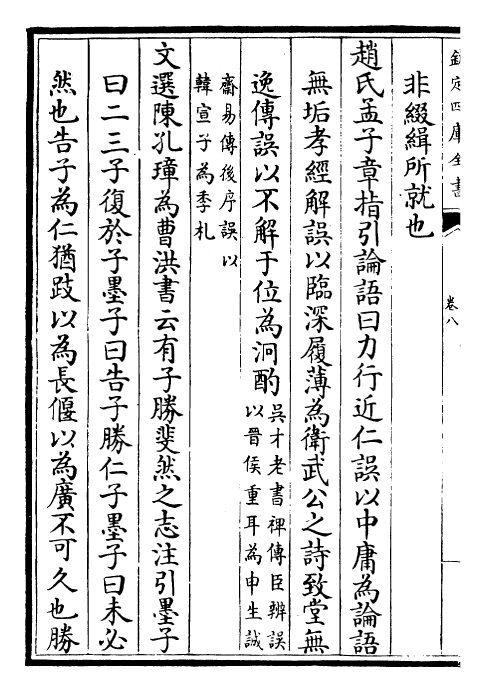 欽定四庫全書
卷八
非綴緝所就也
趙氏孟子章指引論語曰力行近仁誤以中庸為論語
無垢孝經解誤以臨深履薄為衛武公之詩致堂無
逸傳誤以不解于位為泂酌
吳才老書裨傳臣辨誤
以晉侯重耳為申生誠
齋易傳後序誤以
韓宣子為季札
文選陳孔璋為曹洪書云有子勝斐然之志注引墨子
曰二三子復於子墨子曰告子勝仁子墨子曰未必
然也告子為仁猶跂以為長偃以為廣不可久也勝